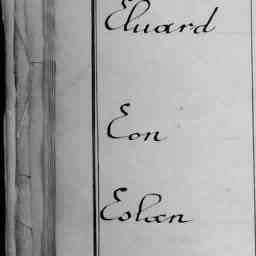 Eluard
Eon
Eslæn